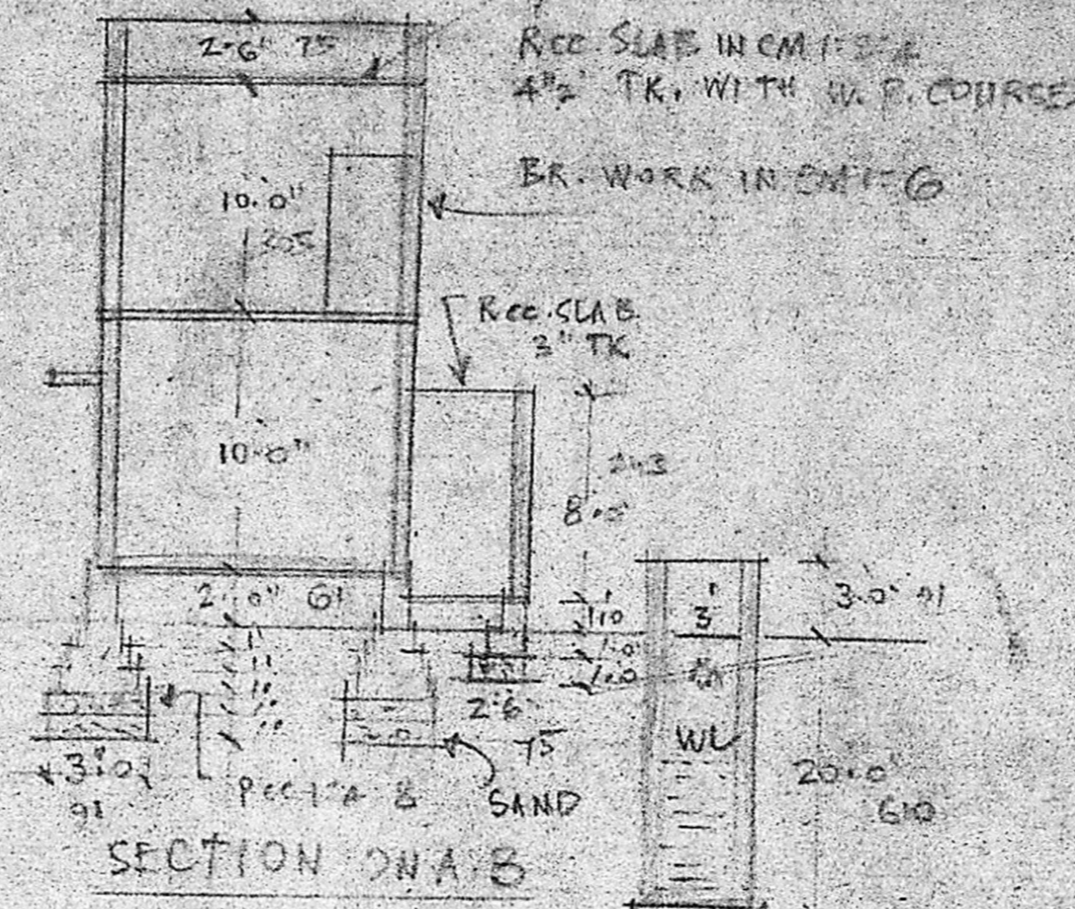 2-6" 75
RCC. SLAB IN CM 1:2:4
4½" TK. WITH W.P. COURSE
BR. WORK IN CM 1=6
10.0"
305
RCC. SLAB.
3" TK
10-0"
243
8.0"
2.0" 61
1.0
1.0
1.0
3'
3.0" 91
2-6
75
WL
3.0
91
PCC 1:4:8
SAND
20.0"
610
SECTION ON A.B